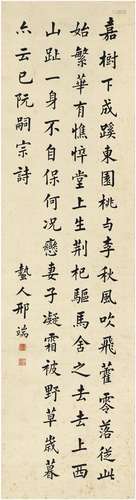 嘉樹下成蹊東園桃与李秋風吹飛藿零落從此
始繁華有憔悴堂上生荆杞驅馬舍之去去上西
山趾一身不自保何況戀妻子凝霜被野草歲暮
亦云已阮嗣宗詩
蟄人邢端